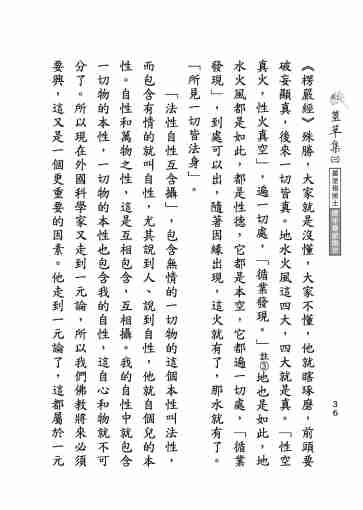 菩提草集㈡
36
《楞嚴經》殊勝，大家就是沒懂，大家不懂，他就瞎琢磨，前頭要
破妄顯真，後來一切皆真。地水火風這四大，四大就是真。「性空
真火，性火真空」，遍一切處，「循業發現。」註③地也是如此，地
水火風都是如此，都是性德，它都是本空，它都遍一切處，「循業
發現」，到處可以出，隨著因緣出現，這火就有了，那水就有了。
「所見一切皆法身」。
「法性自性互含攝」，包含無情的一切物的這個本性叫法性，
而包含有情的就叫自性，尤其說到人、說到自性，他就自個兒的本
性。自性和萬物之性，這是互相包含，互相攝。我的自性中就包含
一切物的本性，一切物的本性也包含我的自性，這自心和物就不可
分了。所以現在外國科學家又走到一元論，所以我們佛教將來必須
要興，這又是一個更重要的因素。他走到一元論了，這都屬於一元